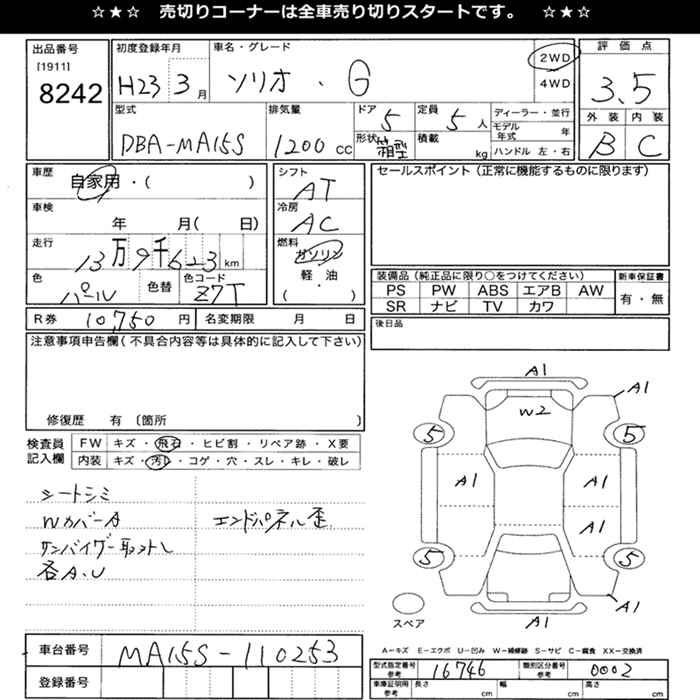 ☆★☆ 売切りコーナーは全車売り切りスタートです。 ☆★☆
出品番号
[1911]
8242
初度登録年月
H23 3月
車名・グレード
ソリオ ・ G
2WD
4WD
評価点
3.5
外装 内装
B C
型式
DBA-MA15S
排気量
1200 cc
ドア 5
形状 箱型
定員 5 人
積載 kg
ディーラー・並行
モデル年式 年
ハンドル 左・右
車歴
自家用・( )
車検
年 月( 日)
走行
13万9千623km
色
パール
色替
色コード
Z7T
シフト
AT
冷房
AC
燃料
ガソリン
軽・油
( ・ )
セールスポイント(正常に機能するものに限ります)
装備品(純正品に限り○をつけてください)
PS PW ABS エアB AW
SR ナビ TV カワ
新車保証書
有・無
後日品
R券 10,750 円
名変期限 月 日
注意事項申告欄(不具合内容等は具体的に記入して下さい)
修復歴 有 〔箇所 〕
検査員記入欄
FW キズ・飛石・ヒビ割・リペア跡・X要
内装 キズ・汚レ・コゲ・穴・スレ・キレ・破レ
シートシミ
WカバーA
エンドパネル歪
サンバイザー取外し
各A.U
A1
A1
W2
5
5
A1
A1
A1
5
5
A1
A1
スペア
A-キズ E-エクボ U-凹み W-補修跡 S-サビ C-腐食 XX-交換済
車台番号 MA15S-110253
登録番号
型式指定番号 参考 16746
類別区分番号 参考 0002
車庫証明用 参考 長さ cm 幅 cm 高さ cm